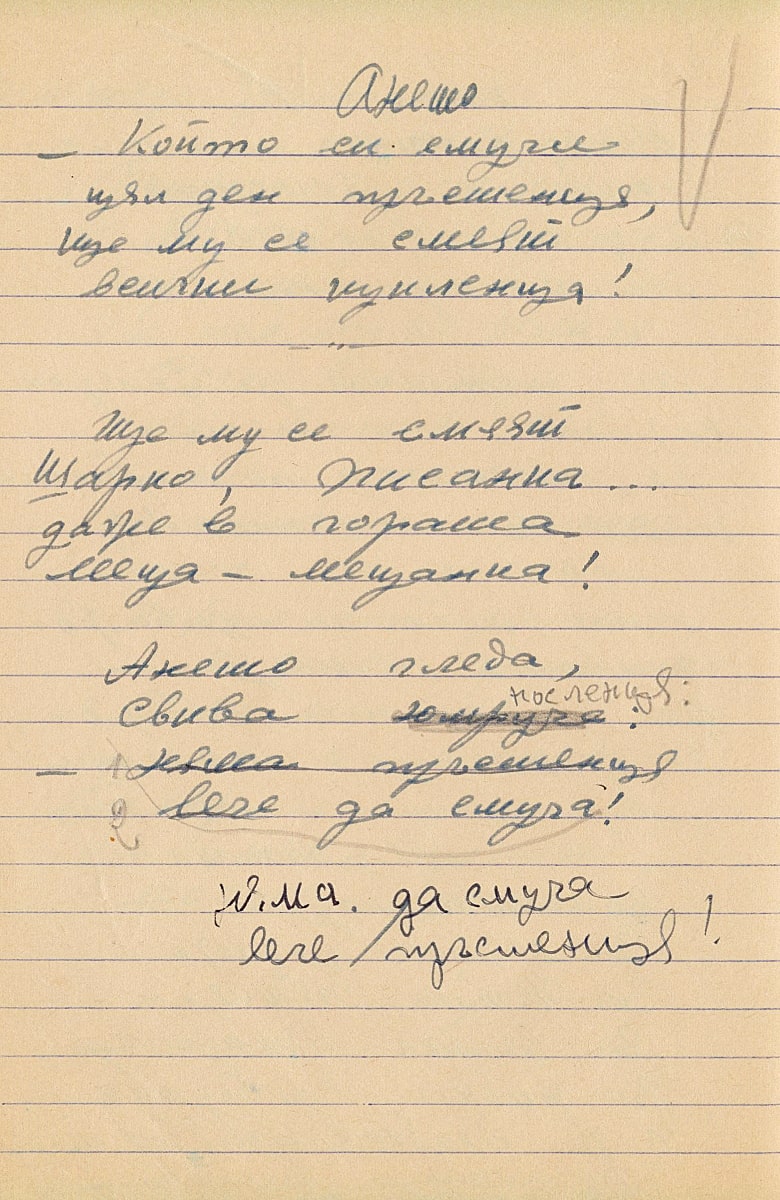 Ането
– Който си смучи
цял ден пръстенца,
ще му се смеят
всички кукленца!
– " –
Ще му се смеят
Шарко, Писанка...
даже в гората
Меца – мецанка!
Ането гледа,
коленца:
Свива юмруча:
– 1 няма пръстенца
2 вече да смуча!
Няма да смуча
вече пръстенца!